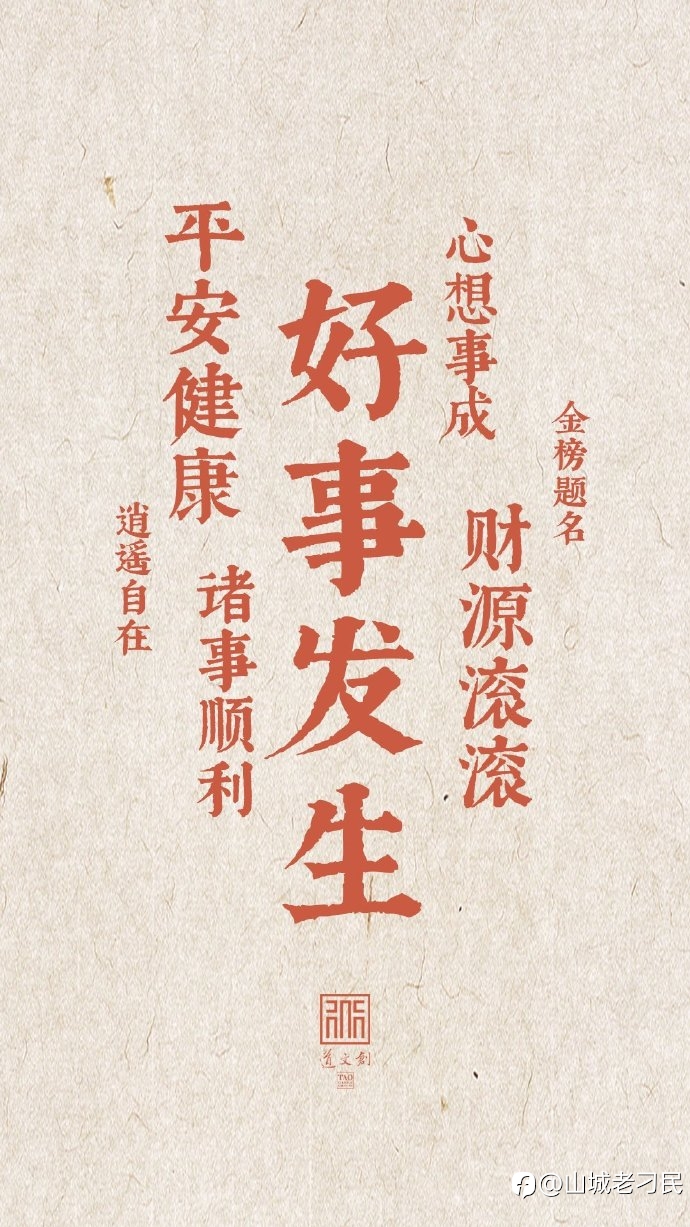 好事发生
平安健康
心想事成
财源滚滚
诸事顺利
金榜题名
逍遥自在
道文創
TAO
@山城老刁民